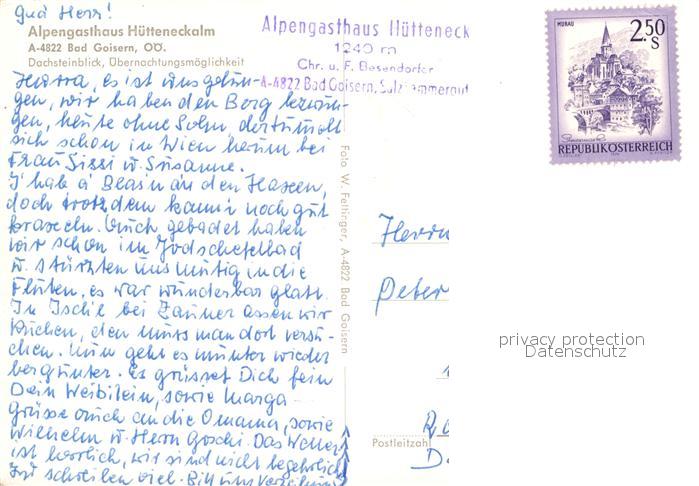 Guá Herz!
Alpengasthaus Hütteneckalm
A-4822 Bad Goisern, OÖ.
Dachsteinblick, Übernachtungsmöglichkeit
Alpengasthaus Hütteneck
1240 m
Chr. u. F. Besendorfer
A-4822 Bad Goisern, Salzkammergut
MURAU
2.50
S
REPUBLIK ÖSTERREICH
Hurra, es ist uns gelun-
gen, wir haben den Berg bezwun-
gen, heute ohne Sohn, der tummelt
sich schon in Wien herum bei
Frau Sissi u. Susanne.
I' hab a Blasn an den Haxen,
doch trotzdem kann i noch gut
kraxeln. Auch gebadet haben
wir schon im Jodschefelbad
u. stürzten uns mutig in die
Fluten, es war wunderbar glatt.
In Ischl bei Zauner assen wir
Kuchen, den muss man dort versu-
chen. Nun geht es munter wieder
bergunter. Es grüsset Dich fein
Dein Weiblein, sowie Marga
Grüsse auch an die Omama, sowie
Wilhelm u. Herrn Goschi. Das Wetter
ist herrlich, wir sind nicht begehrlich
zu schreiben viel. Bitt uns Verzeihung
Foto W. Fettinger, A-4822 Bad Goisern
Herrn
Peter
privacy protection
Datenschutz
Postleitzahl
D.